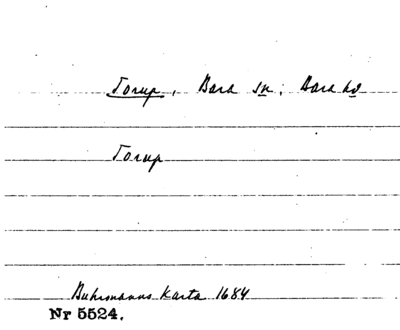 Torup, Bara sn, Bara hd
Torup
Buhrmanns Karta 1684
Nr 5524.